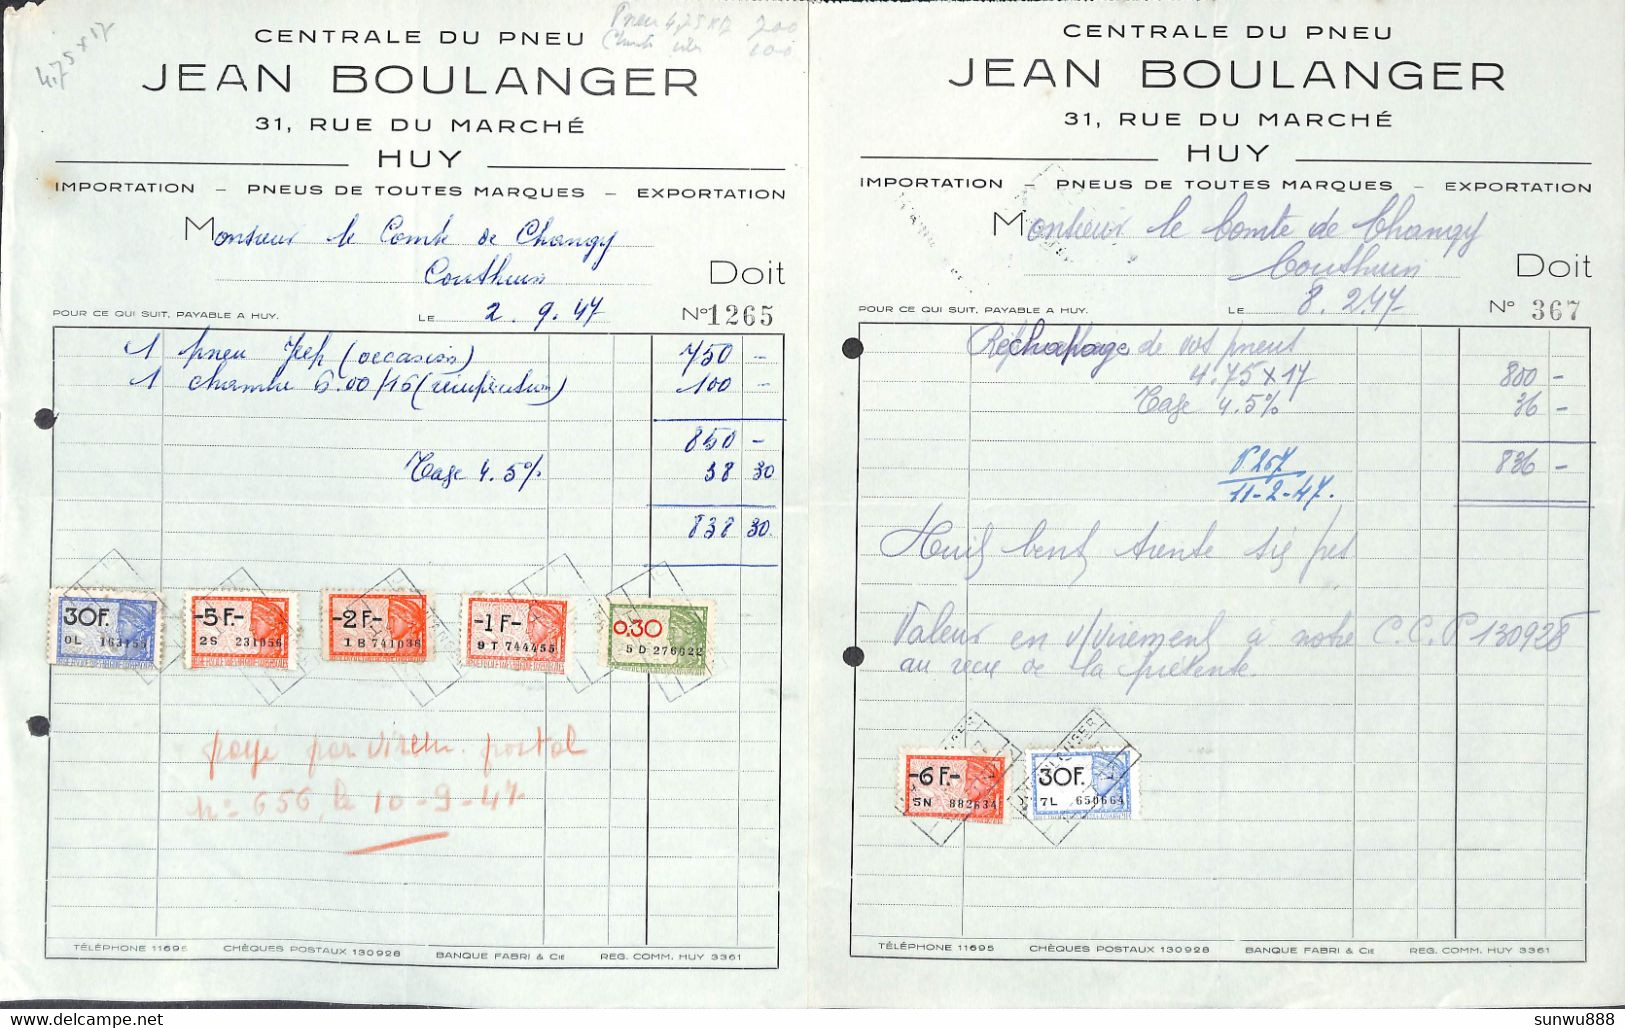 4.75 x 17
Pneu 4,75 x 17 700
100
CENTRALE DU PNEU
JEAN BOULANGER
31, RUE DU MARCHÉ
HUY
IMPORTATION – PNEUS DE TOUTES MARQUES – EXPORTATION
Monsieur le Comte de Changy
Couthuin
Doit
POUR CE QUI SUIT, PAYABLE A HUY. LE 2.9.47 N° 1265
1 pneu Jeep (occasion) 750 -
1 chambre 6.00/16 (récupération) 100 -
850 -
Taxe 4.5% 38 30
838 30
30F. 0L 163155
-5F.- 2S 231056
-2F- 1B 741036
-1F- 9T 744455
0.30 5D 276622
payé par virem. postal
n° 656, le 10-9-47
TÉLÉPHONE 11695 CHÈQUES POSTAUX 130928 BANQUE FABRI & Cie REG. COMM. HUY 3361
CENTRALE DU PNEU
JEAN BOULANGER
31, RUE DU MARCHÉ
HUY
IMPORTATION – PNEUS DE TOUTES MARQUES – EXPORTATION
Monsieur le Comte de Changy
Couthuin
Doit
POUR CE QUI SUIT, PAYABLE A HUY. LE 8.2.47 N° 367
Réchapage de vos pneus
4.75x17 800 -
Taxe 4.5% 36 -
836 -
V 267
11-2-47.
Huit Cent trente six frs
Valeur en v/virement à notre C.C.P 130928
au reçu de la présente.
-6F.- 5N 882634
30F. 7L 650664
BOULANGER
TÉLÉPHONE 11695 CHÈQUES POSTAUX 130928 BANQUE FABRI & Cie REG. COMM. HUY 3361
delcampe.net
sunwu888